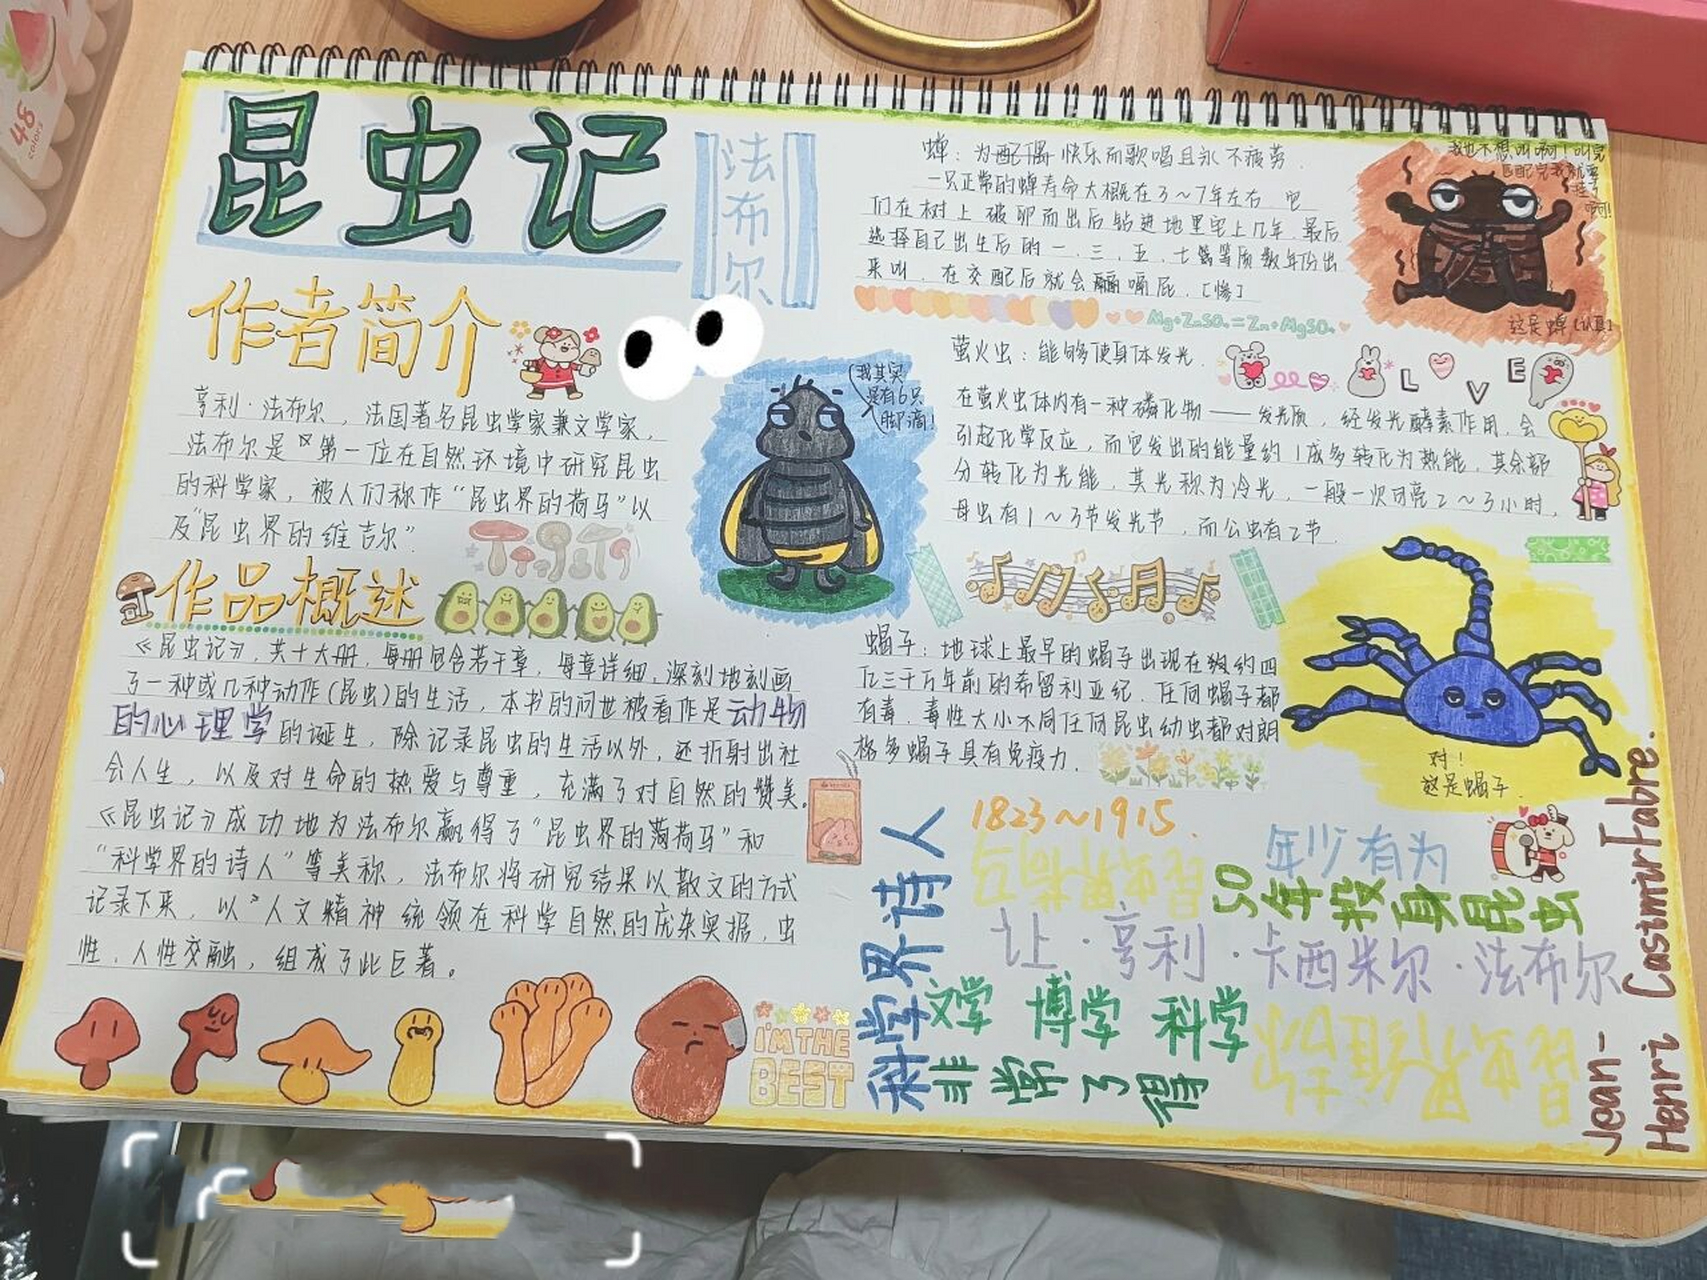 昆虫记
法布尔
作者简介
亨利·法布尔，法国著名昆虫学家兼文学家，
法布尔是第一位在自然环境中研究昆虫
的科学家，被人们称作“昆虫界的荷马”以
及“昆虫界的维吉尔”．
作品概述
《昆虫记》，共十大册，每册包含若干章，每章详细，深刻地刻画
了一种或几种动作(昆虫)的生活，本书的问世被看作是动物
的心理学的诞生，除记录昆虫的生活以外，还折射出社
会人生，以及对生命的热爱与尊重，充满了对自然的赞美。
《昆虫记》成功地为法布尔赢得了“昆虫界的荷马”和
“科学界的诗人”等美称，法布尔将研究结果以散文的方式
记录下来，以”人文精神统领在科学自然的庞杂实据，虫
性．人性交融，组成了此巨著。
I'M THE
BEST
我其实
是有6只
脚滴!
蝉：为配偶快乐而歌唱且永不疲劳．
一只正常的蝉寿命大概在3～7年左右．它
们在树上破卵而出后钻进地里宅上几年．最后
选择自己出生后的一．三．五．七等等质数年份出
来叫．在交配后就会嗝屁．[惨]
我也不想叫啊！叫完
匹配完我就要
挂了
啊!
这是蝉[认真]
Mg+ZnSO₄=Zn+MgSO₄
萤火虫：能够使身体发光．
L V E
在萤火虫体内有一种磷化物——发光质，经发光酵素作用，会
引起化学反应，而它发出的能量约1成多转化为热能，其余部
分转化为光能，其光称为冷光，一般一次可亮2～3小时，
母虫有1～3节发光节，而公虫有2节．
蝎子：地球上最早的蝎子出现在约四
亿三千万年前的希留利亚纪．任何蝎子都
有毒．毒性大小不同任何昆虫幼虫都对朗
格多蝎子具有免疫力．
对！
这是蝎子．
科学界诗人
1823～1915．
昆虫界荷马
年少有为
50年投身昆虫
让·亨利·卡西米尔·法布尔
文学 博学 科学
非常了得
昆虫界维吉尔
Jean-
Henri Castmiur Fabre.
48
colors